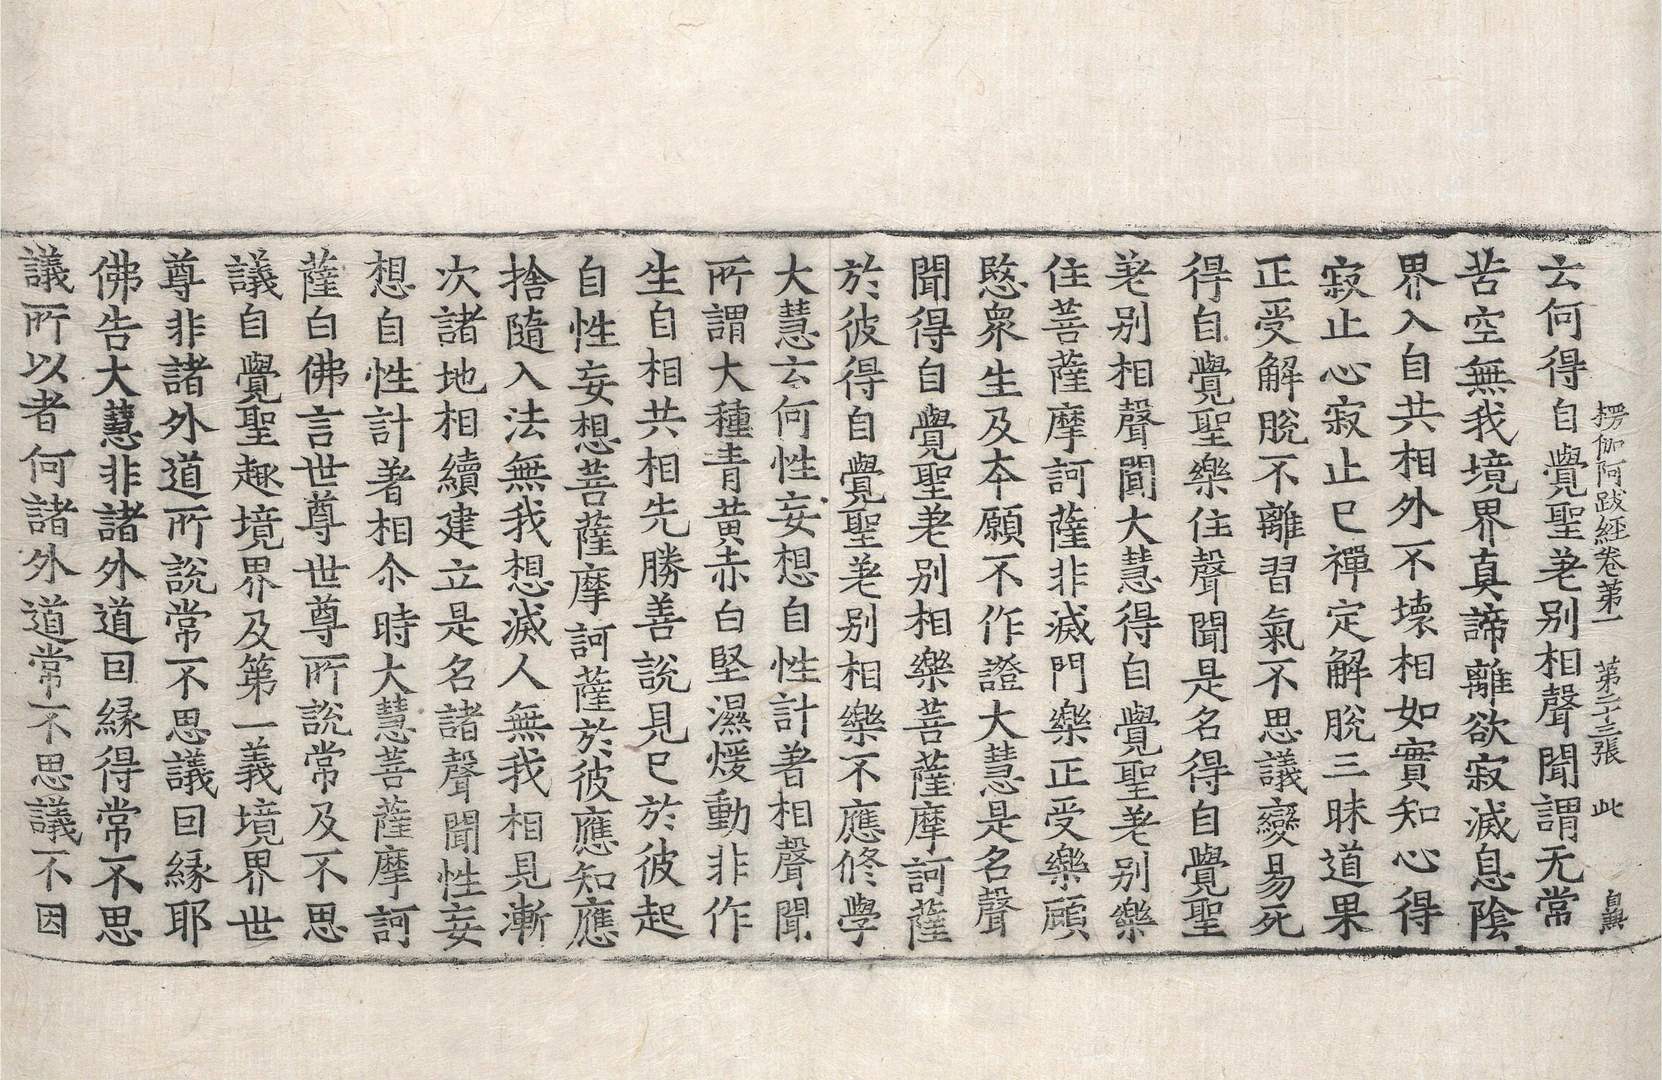 楞伽阿跋經卷第一　第二十三張　此　自興
云何得自覺聖差别相聲聞謂无常
苦空無我境界真諦離欲寂滅息陰
界入自共相外不壞相如實知心得
寂止心寂止已禪定解脫三昧道果
正受解脫不離習氣不思議變易死
得自覺聖樂住聲聞是名得自覺聖
差别相聲聞大慧得自覺聖差别樂
住菩薩摩訶薩非滅門樂正受樂顧
愍衆生及本願不作證大慧是名聲
聞得自覺聖差别相樂菩薩摩訶薩
於彼得自覺聖差别相樂不應修學
大慧云何性妄想自性計著相聲聞
所謂大種青黄赤白堅濕煖動非作
生自相共相先勝善說見已於彼起
自性妄想菩薩摩訶薩於彼應知應
捨隨入法無我想滅人無我相見漸
次諸地相續建立是名諸聲聞性妄
想自性計著相尒時大慧菩薩摩訶
薩白佛言世尊世尊所說常及不思
議自覺聖趣境界及第一義境界世
尊非諸外道所説常不思議因緣耶
佛告大慧非諸外道因緣得常不思
議所以者何諸外道常不思議不因